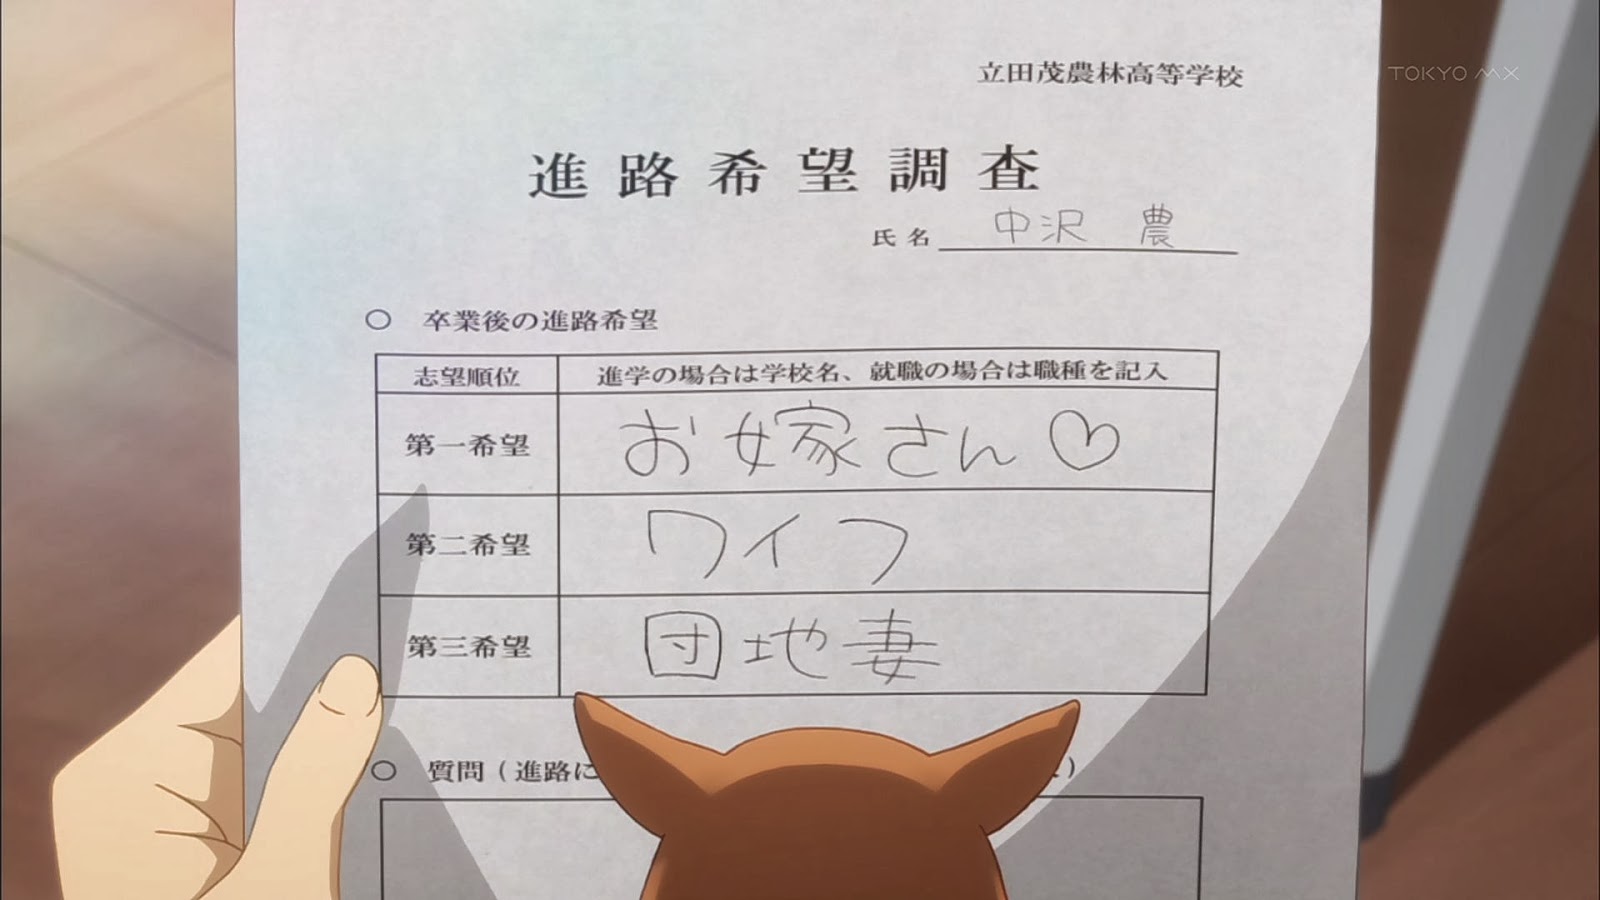 立田茂農林高等学校
TOKYO MX
進路希望調査
氏名 中沢 農
○ 卒業後の進路希望
志望順位 進学の場合は学校名、就職の場合は職種を記入
第一希望 お嫁さん♡
第二希望 ワイフ
第三希望 団地妻
○ 質問(進路に )